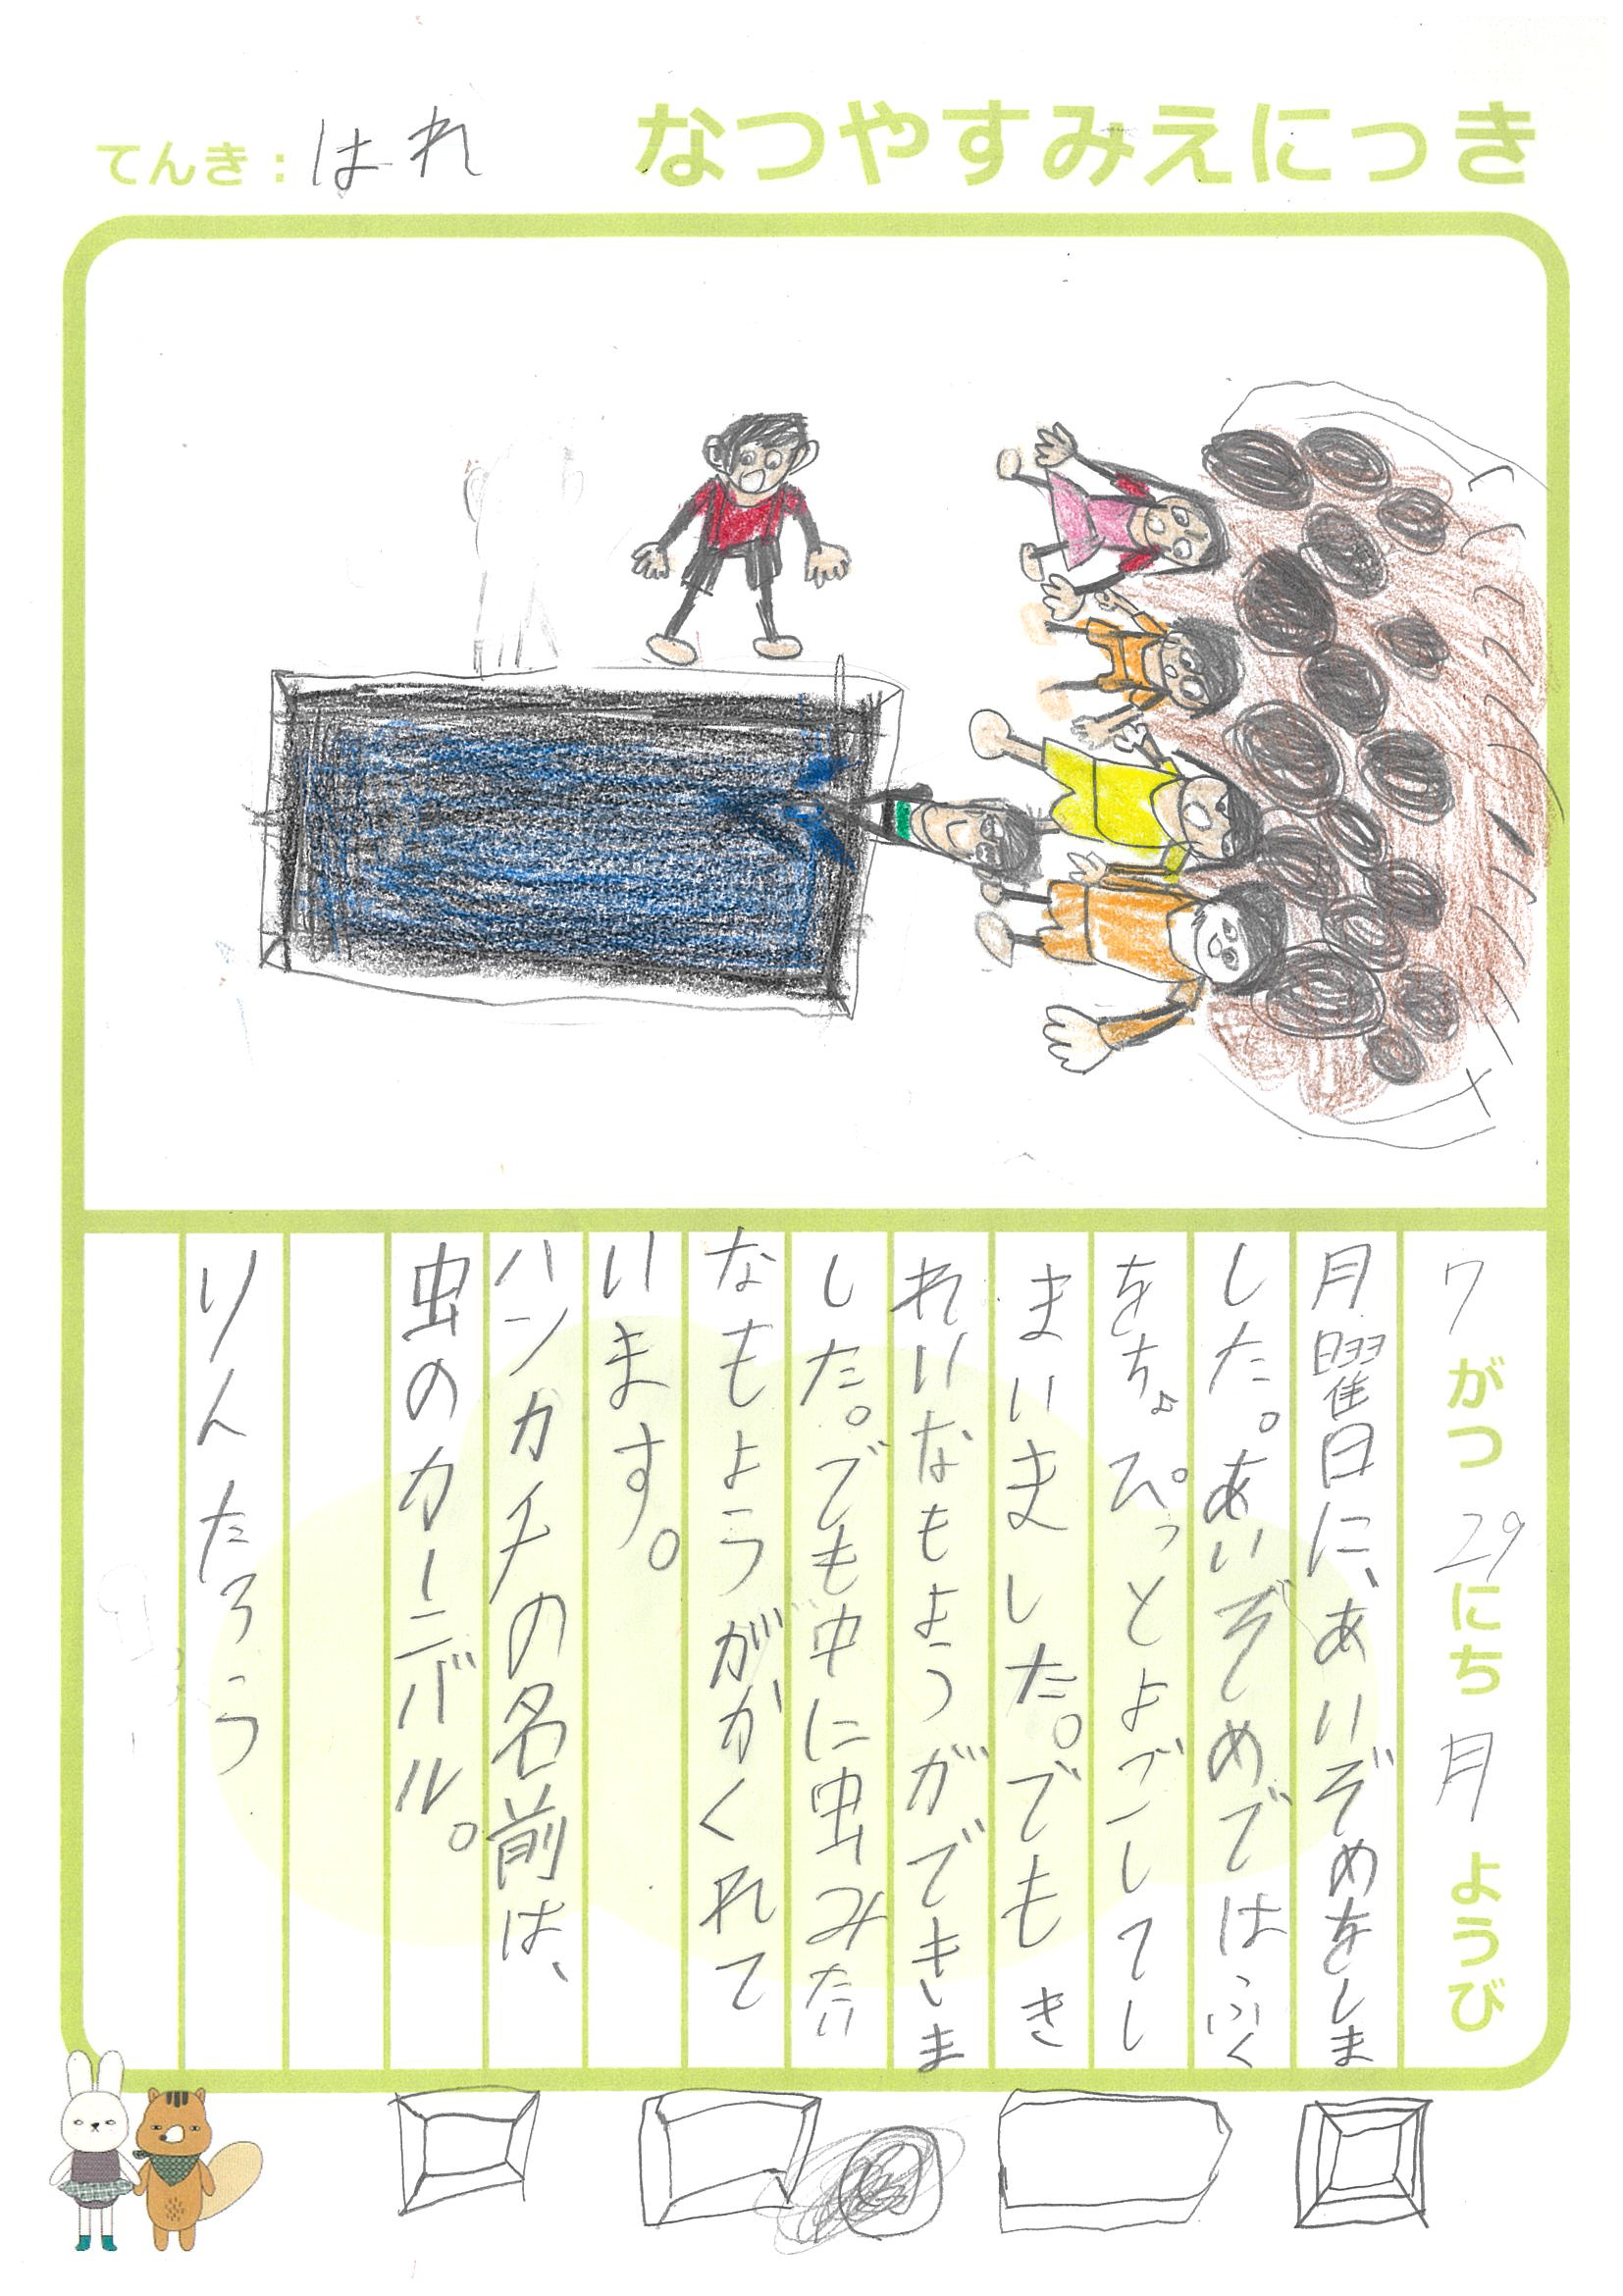 なつやすみえにっき
てんき：はれ
7がつ29にち月ようび
月曜日に、あいぞめをしま
した。あいぞめでは、ふく
をちょぴっとよごしてし
まいました。でもき
れいなもようができま
した。でも中に虫みたい
なもようががくれて
います。
ハンカチの名前は、
虫のカーニバル。
りんたろう